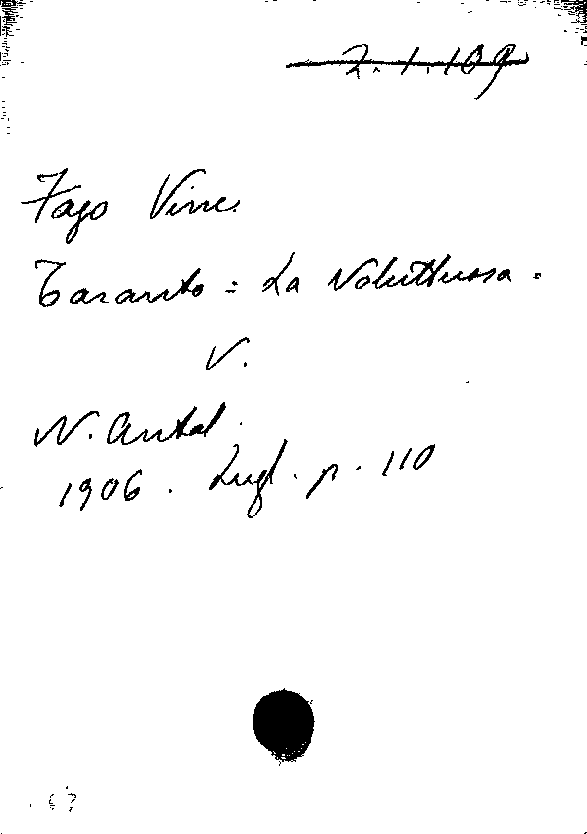 2.1.109
Fago Vinc.
Taranto = La Voluttuosa.
V.
N. Antol.
1906. Lugl. p. 110